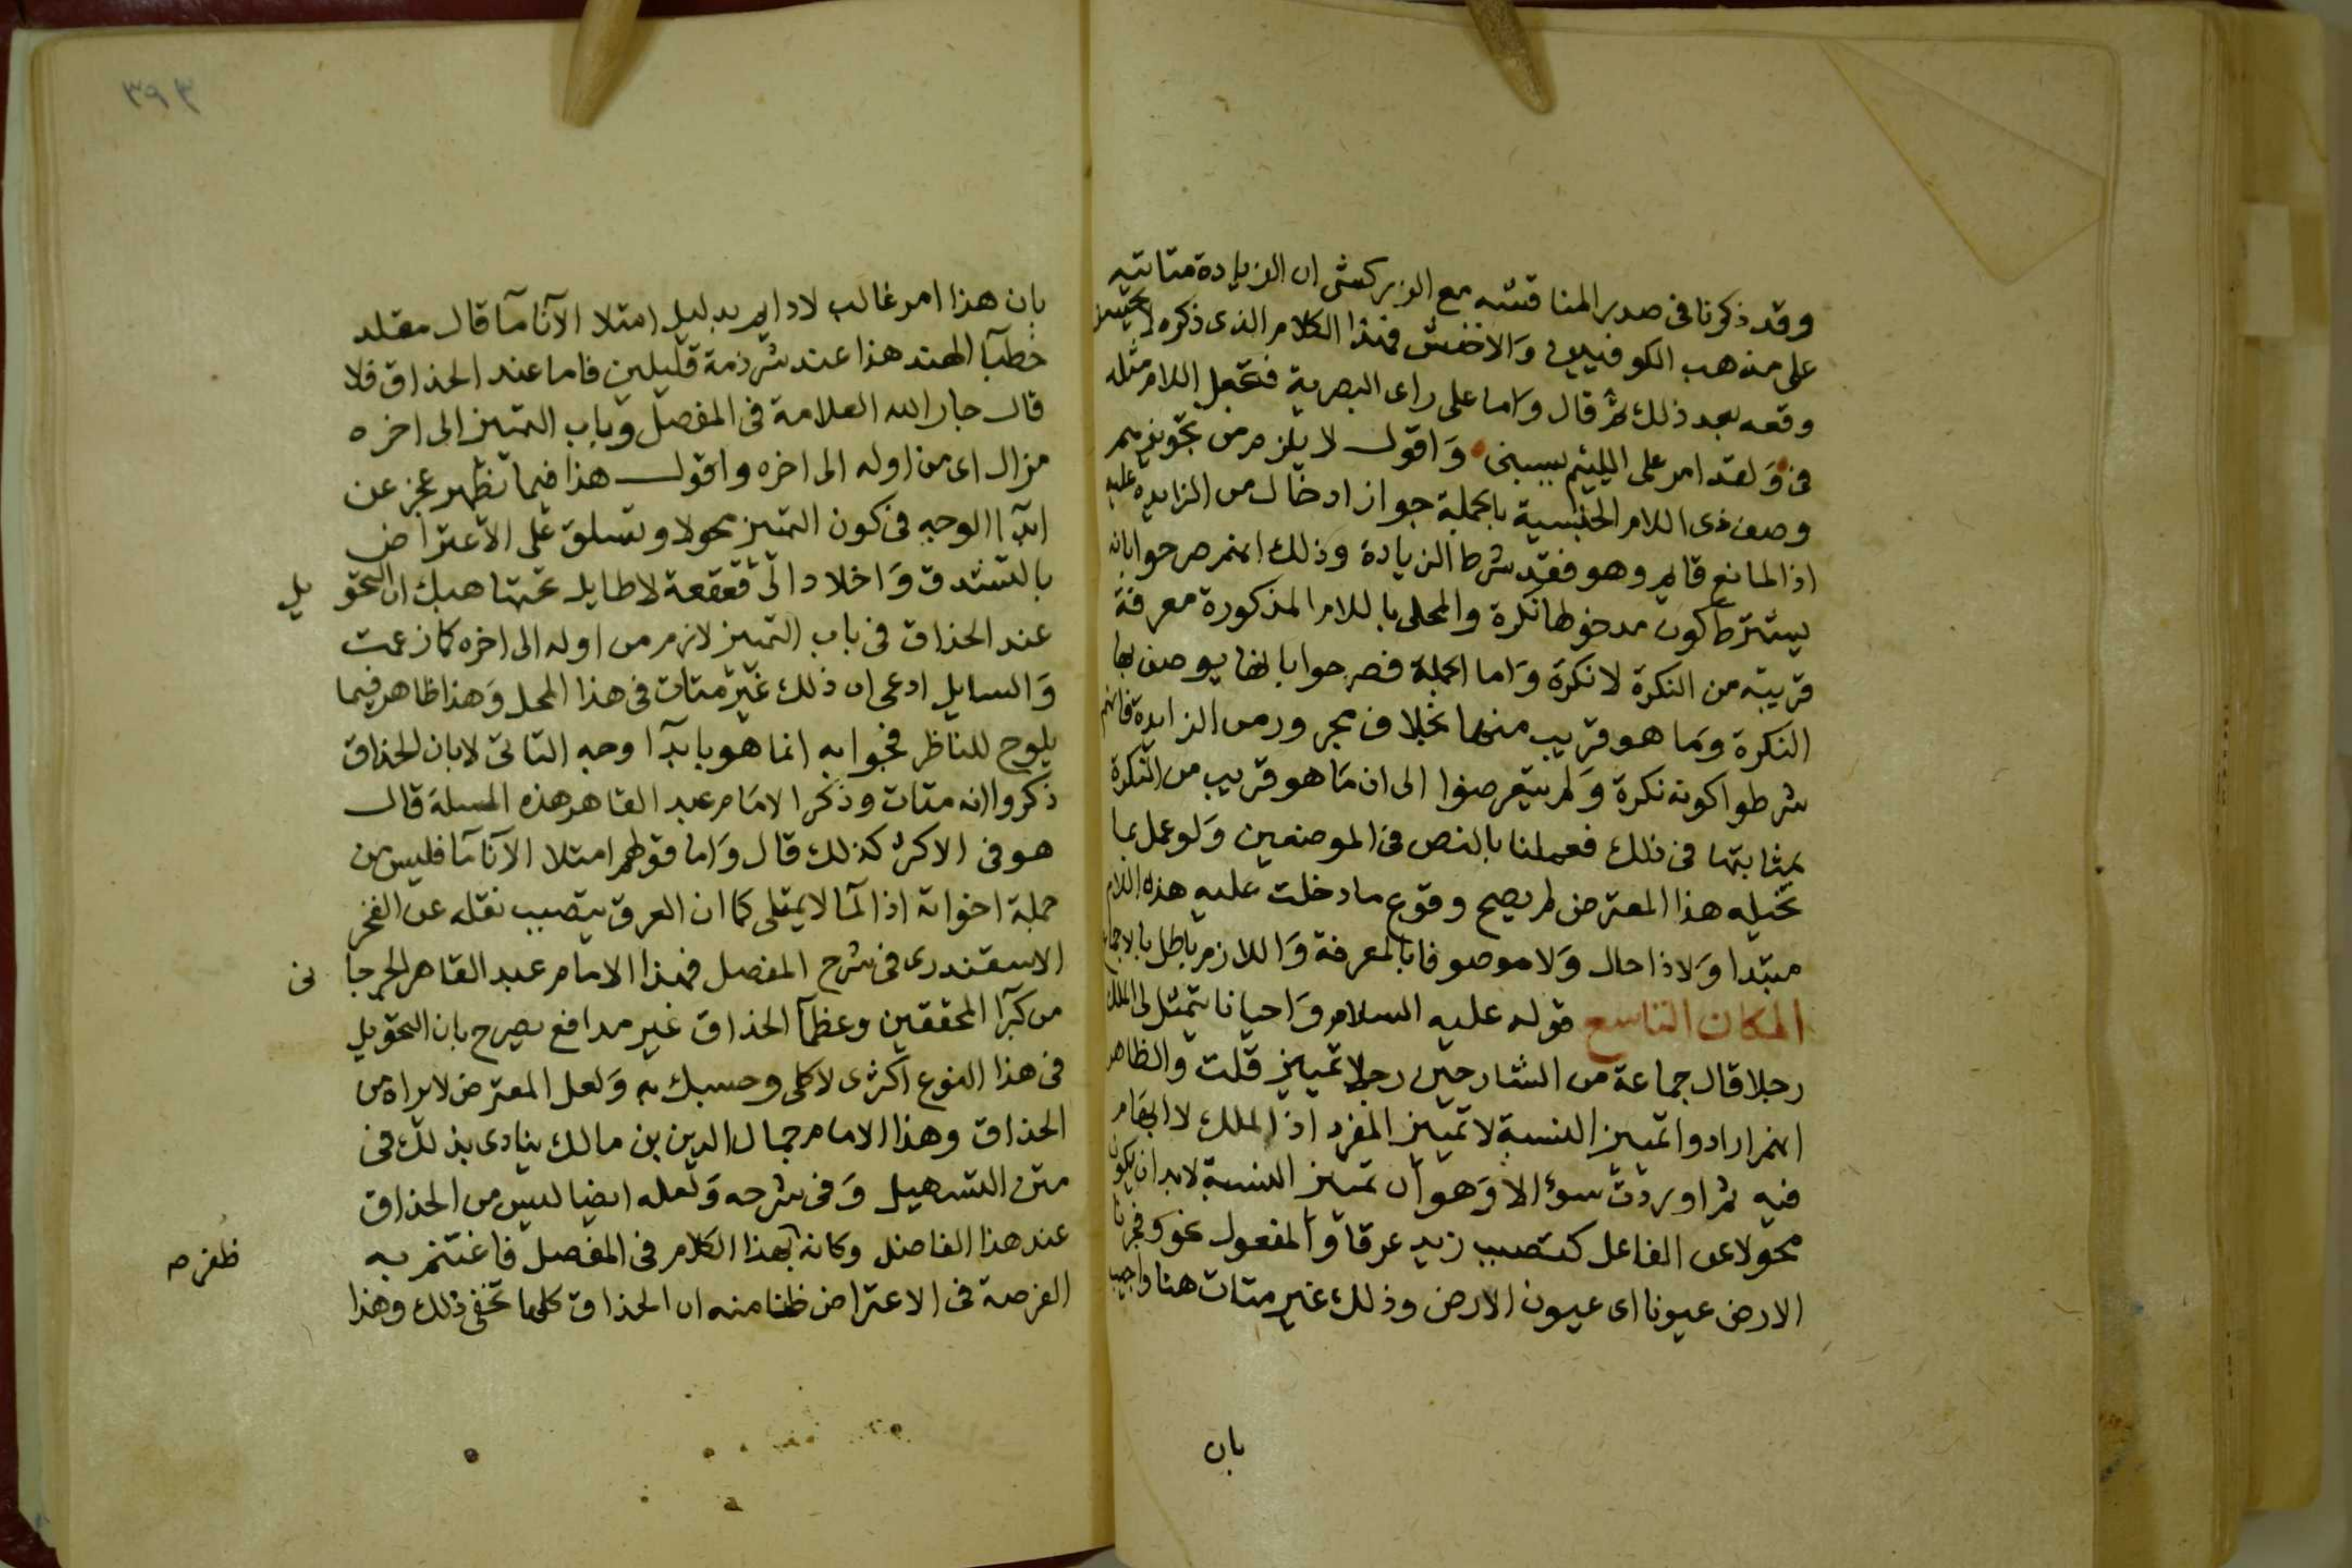 وقد ذكرنا فى صدر المناقشه مع الزركشى ان الزيادة متاتيه
على مذهب الكوفيين وَالاخفش فهذا الكلام الذى ذكره لا يحسن
وقعه بعد ذلك ثم قال وَاما على راى البصرية فتجعل اللام مثله
فى وَلقد امر على الليئم يسبنى وَاقول لا يلزم من تجويزهم
وصف ذى اللام الجنسية بالجملة جواز ادخال من الزايدة عليه
اذ المانع قايم وهو فقد شرط الزيادة وذلك انهم صرحوا بانه
يشترط كون مدخولها نكرة والمحلى باللام المذكورة معرفة
قريبة من النكرة لا نكرة وَاما الجملة فصرحوا بانها يوصف بها
النكرة وَما هو قريب منها بخلاف مجرور من الزايدة فانهم
شرطوا كونه نكرة وَلم يتعرضوا الى ان مَا هو قريب من النكرة
بمثابتها فى ذلك فعملنا بالنص فى الموضعين وَلو عمل بما
تخيله هذا المعترض لم يصح وقوع ما دخلت عليه هذه اللام
مبتدا وَلا ذا حال وَلا موصوفا بالمعرفة وَاللازم باطل بالاجماع
المكان التاسع قوله عليه السلام وَاحيانا يتمثل لى الملك
رجلا قال جماعة من الشارحين رجلا تمييز قلت والظاهر
انهم ارادوا تمييز النسبة لا تمييز المفرد اذ الملك لا ابهام
فيه ثم اوردت سوٴالا وَهو ان تمييز النسبة لا بد ان يكون
محولا عن الفاعل كتصبب زيد عرقا وَالمفعول نحو وفجرنا
الارض عيونا اى عيون الارض وذلك غير متات هنا واجيب
بان
٣٩٣
بان هذا امر غالب لا دايم بدليل امتلا الآنا مآ قال مقلد
خطبآ الهند هذا عند شرذمة قليلين فاما عند الحذاق فلا
قال جار الله العلامة فى المفصل وباب التميز الى اخره
مزال اى من اوله الى اخره واقول هذا فيما تظهر عجز عن
ابدآ الوجه فى كون التميز محولا وتسلق على الاعتراض
بالتشدق وَاخلاد الى قعقعة لا طايل تحتها هبك ان التحويل
عند الحذاق فى باب التميز لازم من اوله الى اخره كما زعمت
وَالسايل ادعى ان ذلك غير متات فى هذا المحل وَهذا ظاهر فيما
يلوح للناظر فجوابه انما هو بابدآ وجه التاتى لا بان الحذاق
ذكروا انه متات وذكر الامَام عبد القاهر هذه المسلة قال
هو فى الاكثر كذلك قال وَاما قولهم امتلا الآنا مآ فليس من
جملة اخواته اذ المآ لا يمتلى كما ان العرق يتصبب نقله عن الفخر
الاسقندرى فى شرح المفصل فهذا الامام عبد القاهر الجرجانى
من كبرآ المحققين وعظمآ الحذاق غير مدافع يصرح بان التحويل
فى هذا النوع اكثرى لا كلى وحسبك به وَلعل المعترض لا يراه من
الحذاق وهذا الامام جمال الدين بن مالك ينادى بذلك فى
متن التسهيل وَفى شرحه وَلعله ايضا ليس من الحذاق
عند هذا الفاضل وكانه بهذا الكلام فى المفصل فاغتنم به
الفرصة فى الاعتراض ظنا منه ان الحذاق كلها تخفى ذلك وهذا